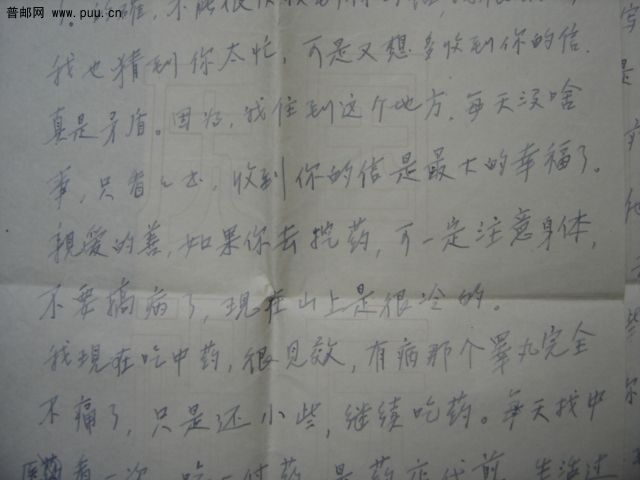 普邮网
www.puu.cn
我也猜到你太忙，可是又想多收到你的信.
真是矛盾。因为，我住到这个地方，每天没啥
事，只看々书，收到你的信是最大的幸福了。
親爱的善，如果你去挖药，可一定注意身体，
不要搞病了，现在山上是很冷的。
我现在吃中药，很见效，有病那个睾丸完全
不痛了，只是还小些，继续吃药。每天找中
医看一次，吃一付药，是药
写
是
些
你